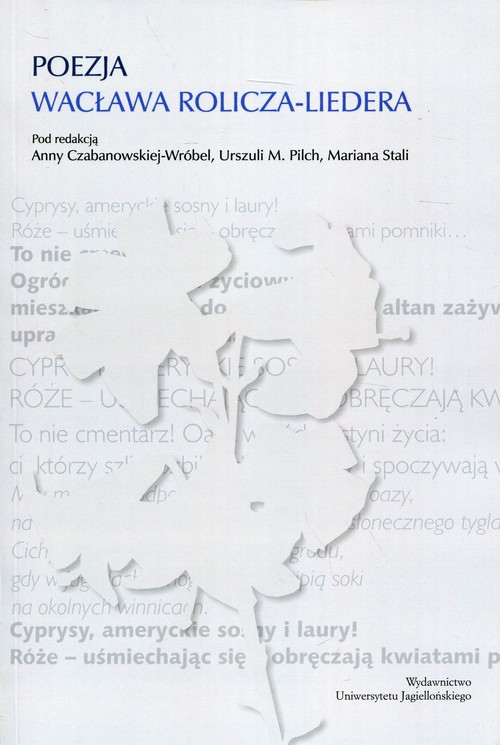 POEZJA
WACŁAWA ROLICZA-LIEDERA
Pod redakcją
Anny Czabanowskiej-Wróbel, Urszuli M. Pilch, Mariana Stali
Cyprysy, ameryckie sosny i laury!
Róże – uśmie się obręcz ami pomniki...
To nie
Ogró życiow
miesz do altan zażyw
upra
CYPR ERYCKIE SOS LAURY!
RÓŻE – U ECHA ĄC OBRĘCZAJĄ KW
To nie cmentarz! Oa w styni życia:
ci, którzy szli bil i spoczywają w
M m dpo oazy,
na słonecznego tygla
Cich grodu,
gdy w pią soki
na okolnych winnicach.
Cyprysy, ameryckie sosny i laury!
Róże – uśmiechając się obręczają kwiatami p
Wydawnictwo
Uniwersytetu Jagiellońskiego